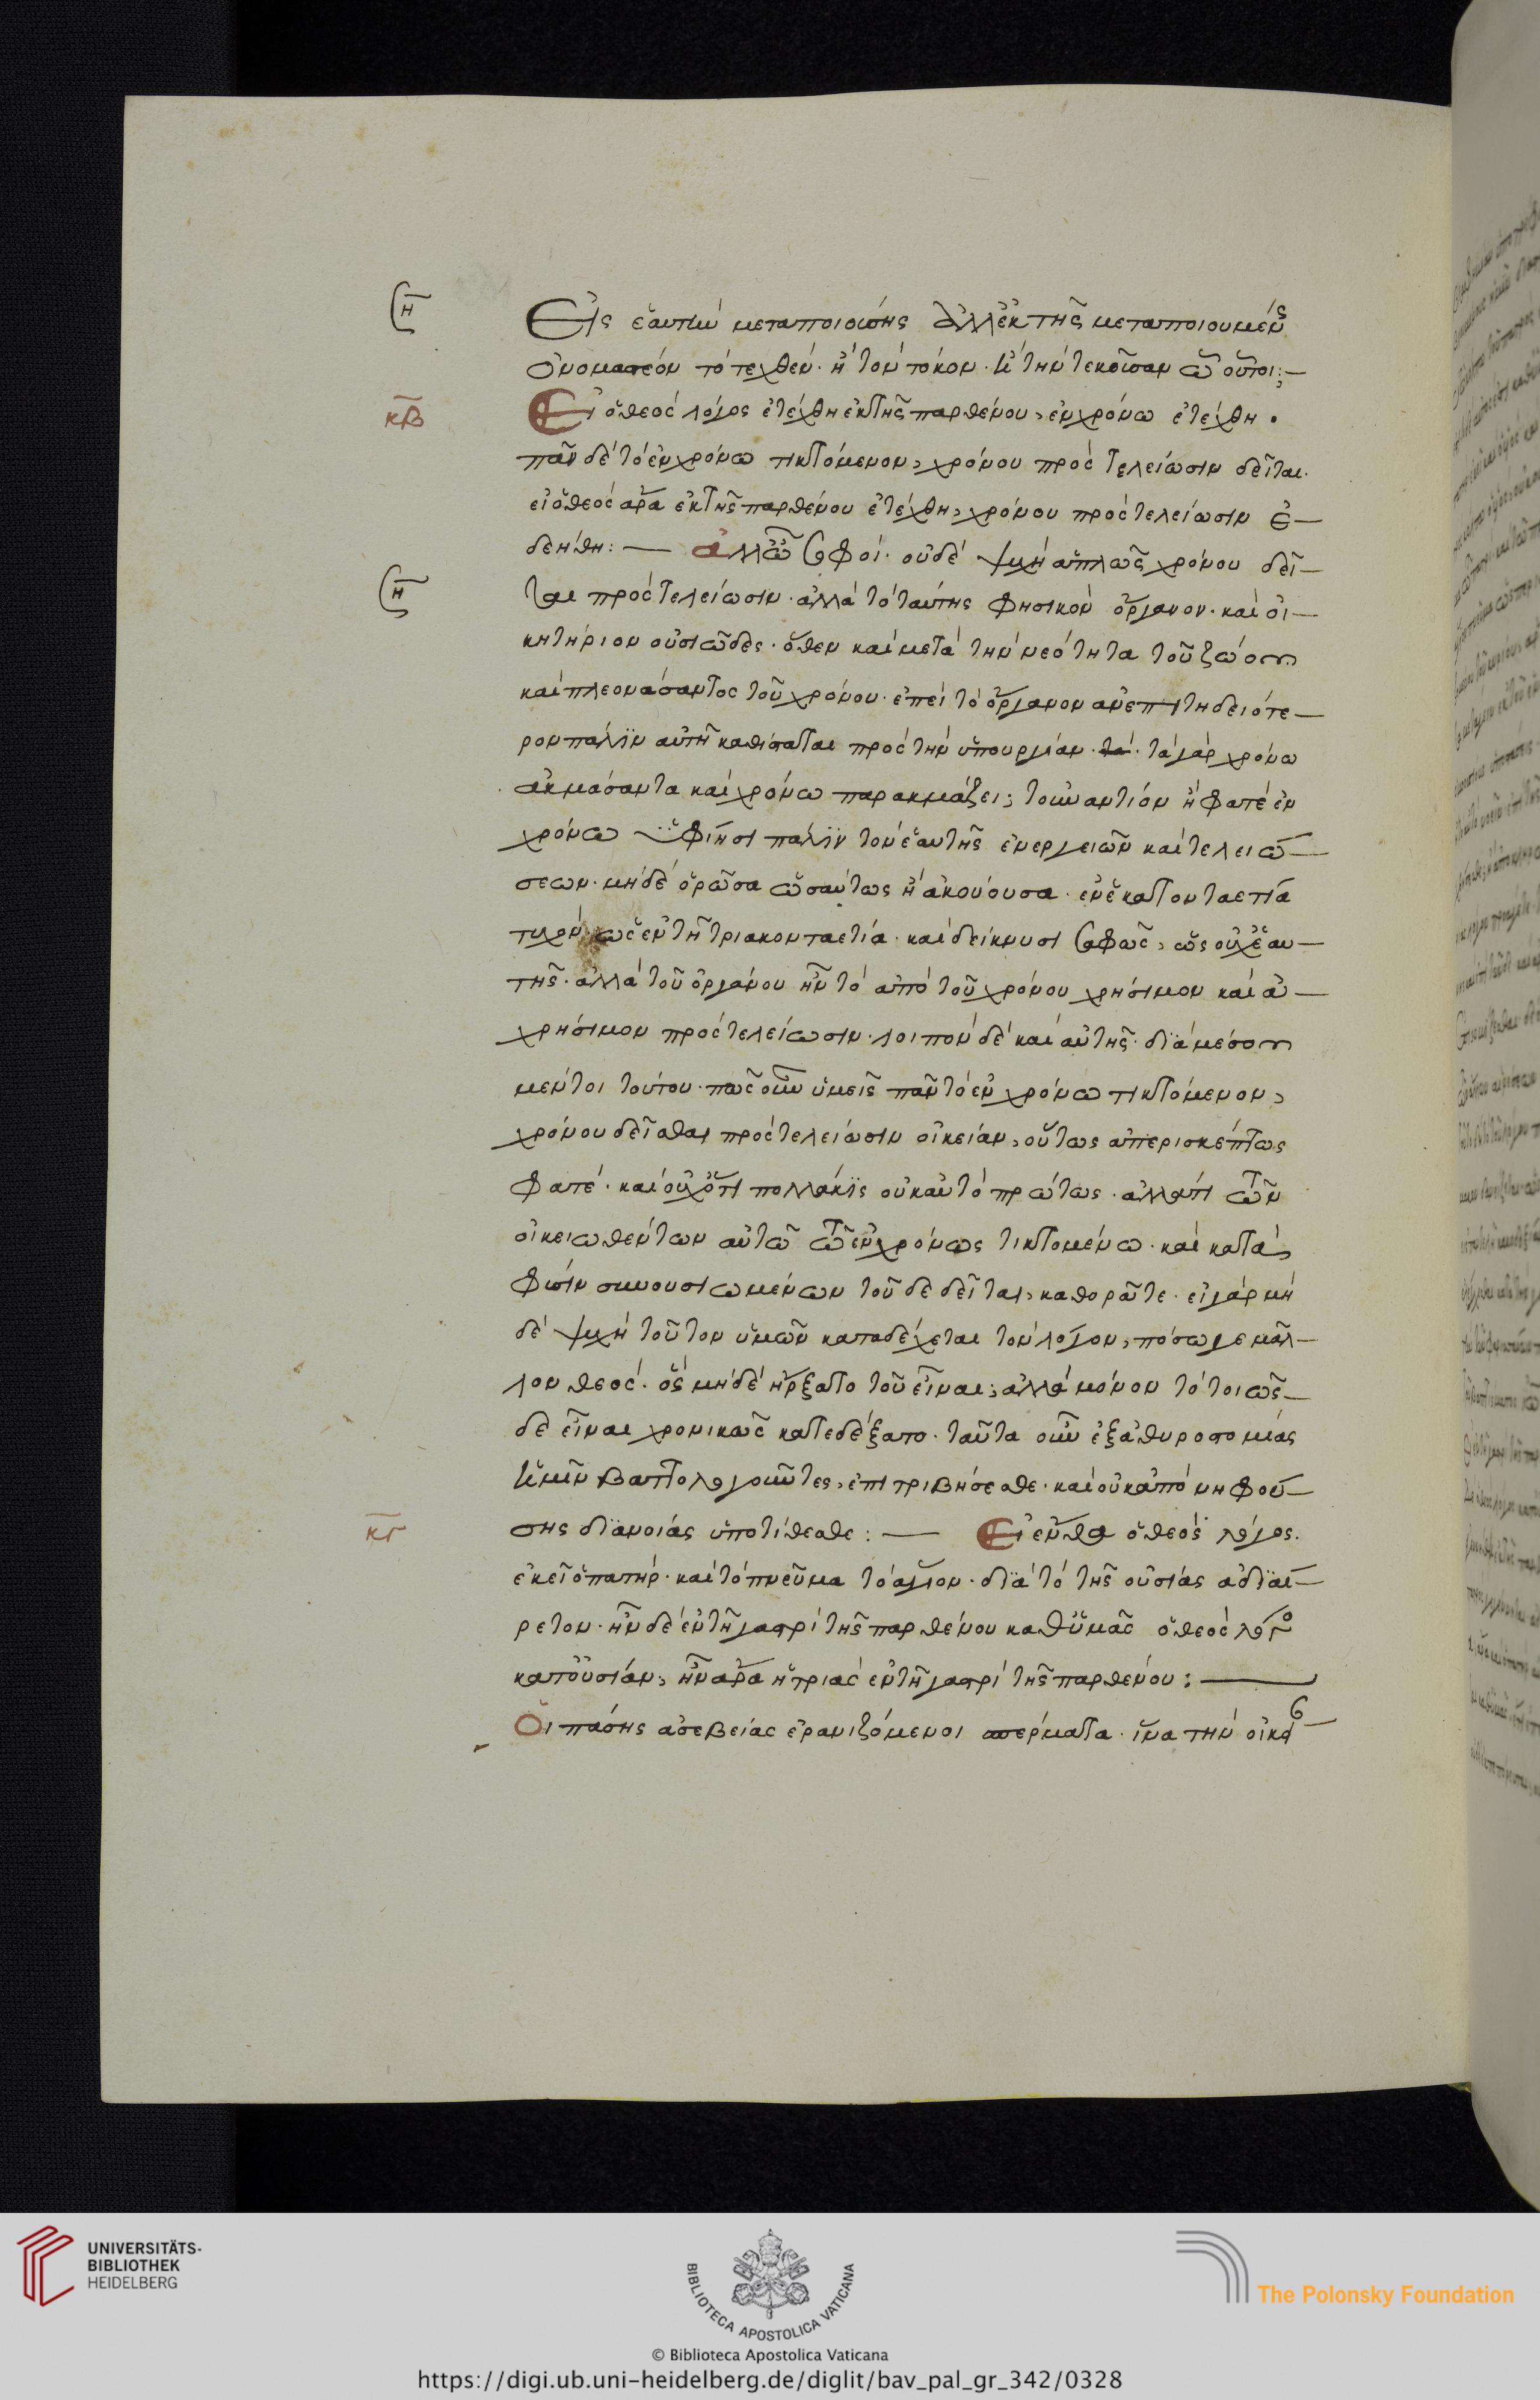 Εἰς ἑαυτὴν μεταποιούσης ἀλλ' ἐκ τῆς μεταποιουμένης
ὀνομαστέον τὸ τεχθὲν· ἢ τὸν τόκον· καὶ τὴν τεκοῦσαν ὦ οὗτοι:
κβ Εἰ ὁ θεὸς λόγος ἐτέχθη ἐκ τῆς παρθένου, ἐν χρόνω ἐτέχθη·
πᾶν δὲ τὸ ἐν χρόνω τικτόμενον, χρόνου πρὸς τελείωσιν δεῖται·
εἰ ὁ θεὸς ἄρα ἐκ τῆς παρθένου ἐτέχθη, χρόνου πρὸς τελείωσιν ἐ–
δεήθη: — ἀλλ' ὦ σοφοί· οὐδὲ ψυχὴ ἁπλῶς χρόνου δεῖ–
ται πρὸς τελείωσιν· ἀλλὰ τὸ ταύτης φυσικὸν ὄργανον· καὶ οἰ–
κητήριον οὐσιῶδες· ὅθεν καὶ μετὰ τὴν νεότητα τοῦ ζώου
καὶ πλεονάσαντος τοῦ χρόνου· ἐπεὶ τὸ ὄργανον ἀνεπιτηδειότε–
ρον πάλιν αὐτῇ καθίσταται πρὸς τὴν ὑπουργίαν· τὰ γὰρ χρόνω
ἀκμάσαντα καὶ χρόνω παρακμάζει; τοὐναντίον ἢ φατὲ ἐν
χρόνω ὑφίησι πάλιν τὸν ἑαυτῆς ἐνεργειῶν καὶ τελειώ–
σεων· μηδὲ ὁρῶσα ὡσαύτως ἢ ἀκούουσα· ἐν ἑκατονταετία
τυχὸν ὡς ἐν τῇ τριακονταετία· καὶ δείκνυσι σαφῶς, ὡς οὐχ ἑαυ–
τῆς· ἀλλὰ τοῦ ὀργάνου ἦν τὸ ἀπὸ τοῦ χρόνου χρήσιμον καὶ ἀ–
χρήσιμον πρὸς τελείωσιν· λοιπὸν δὲ καὶ αὐτῆς· διὰ μέσου
μέντοι τούτου· πῶς οὖν ὑμεῖς πᾶν τὸ ἐν χρόνω τικτόμενον,
χρόνου δεῖσθαι πρὸς τελείωσιν οἰκείαν, οὕτως ἀπερισκέπτως
φατέ· καὶ οὐχ ὅτι πολλάκις οὐκ αὐτὸ πρώτως· ἀλλά τι τῶν
οἰκειωθέντων αὐτῷ τῷ ἐν χρόνω τικτομένω· καὶ κατὰ
φύσιν συνουσιωμένων τοῦδε δεῖται, καθορᾶτε· εἰ γὰρ μη
δὲ ψυχὴ τοῦτον ὑμῶν καταδέχεται τὸν λόγον, πόσω γε μᾶλ–
λον θεός· ὃς μηδὲ ἤρξατο τοῦ εἶναι; ἀλλὰ μόνον τὸ τοιῶς–
δε εἶναι χρονικῶς κατεδέξατο· ταῦτα οὖν ἐξ ἀθυροστομίας
ἡμῖν βαττολογοῦντες, ἐπιτριβήσεσθε· καὶ οὐκ ἀπὸ νηφού–
κγ σης διανοίας ὑποτίθεσθε: — Εἰ ἔνθα ὁ θεὸς λόγος·
ἐκεῖ ὁ πατήρ· καὶ τὸ πνεῦμα τὸ ἅγιον· διὰ τὸ τῆς οὐσίας ἀδιαί–
ρετον· ἦν δὲ ἐν τῇ γαστρὶ τῆς παρθένου καθ' ὑμᾶς ὁ θεὸς λόγος
κατ' οὐσίαν, ἦν ἄρα ἡ τριὰς ἐν τῇ γαστρὶ τῆς παρθένου: —
Οἱ πάσης ἀσεβείας ἐρανιζόμενοι σπέρματα· ἵνα τὴν οἰκο–
UNIVERSITÄTS-
BIBLIOTHEK
HEIDELBERG
BIBLIOTECA APOSTOLICA VATICANA
The Polonsky Foundation
© Biblioteca Apostolica Vaticana
https://digi.ub.uni-heidelberg.de/diglit/bav_pal_gr_342/0328